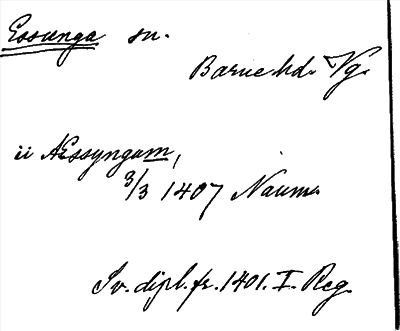 Essunga sn.
Barne hd. Vg.
ii Æssyngum,
3/3 1407 Naum.
Sv. dipl. fr. 1401. I. Reg.